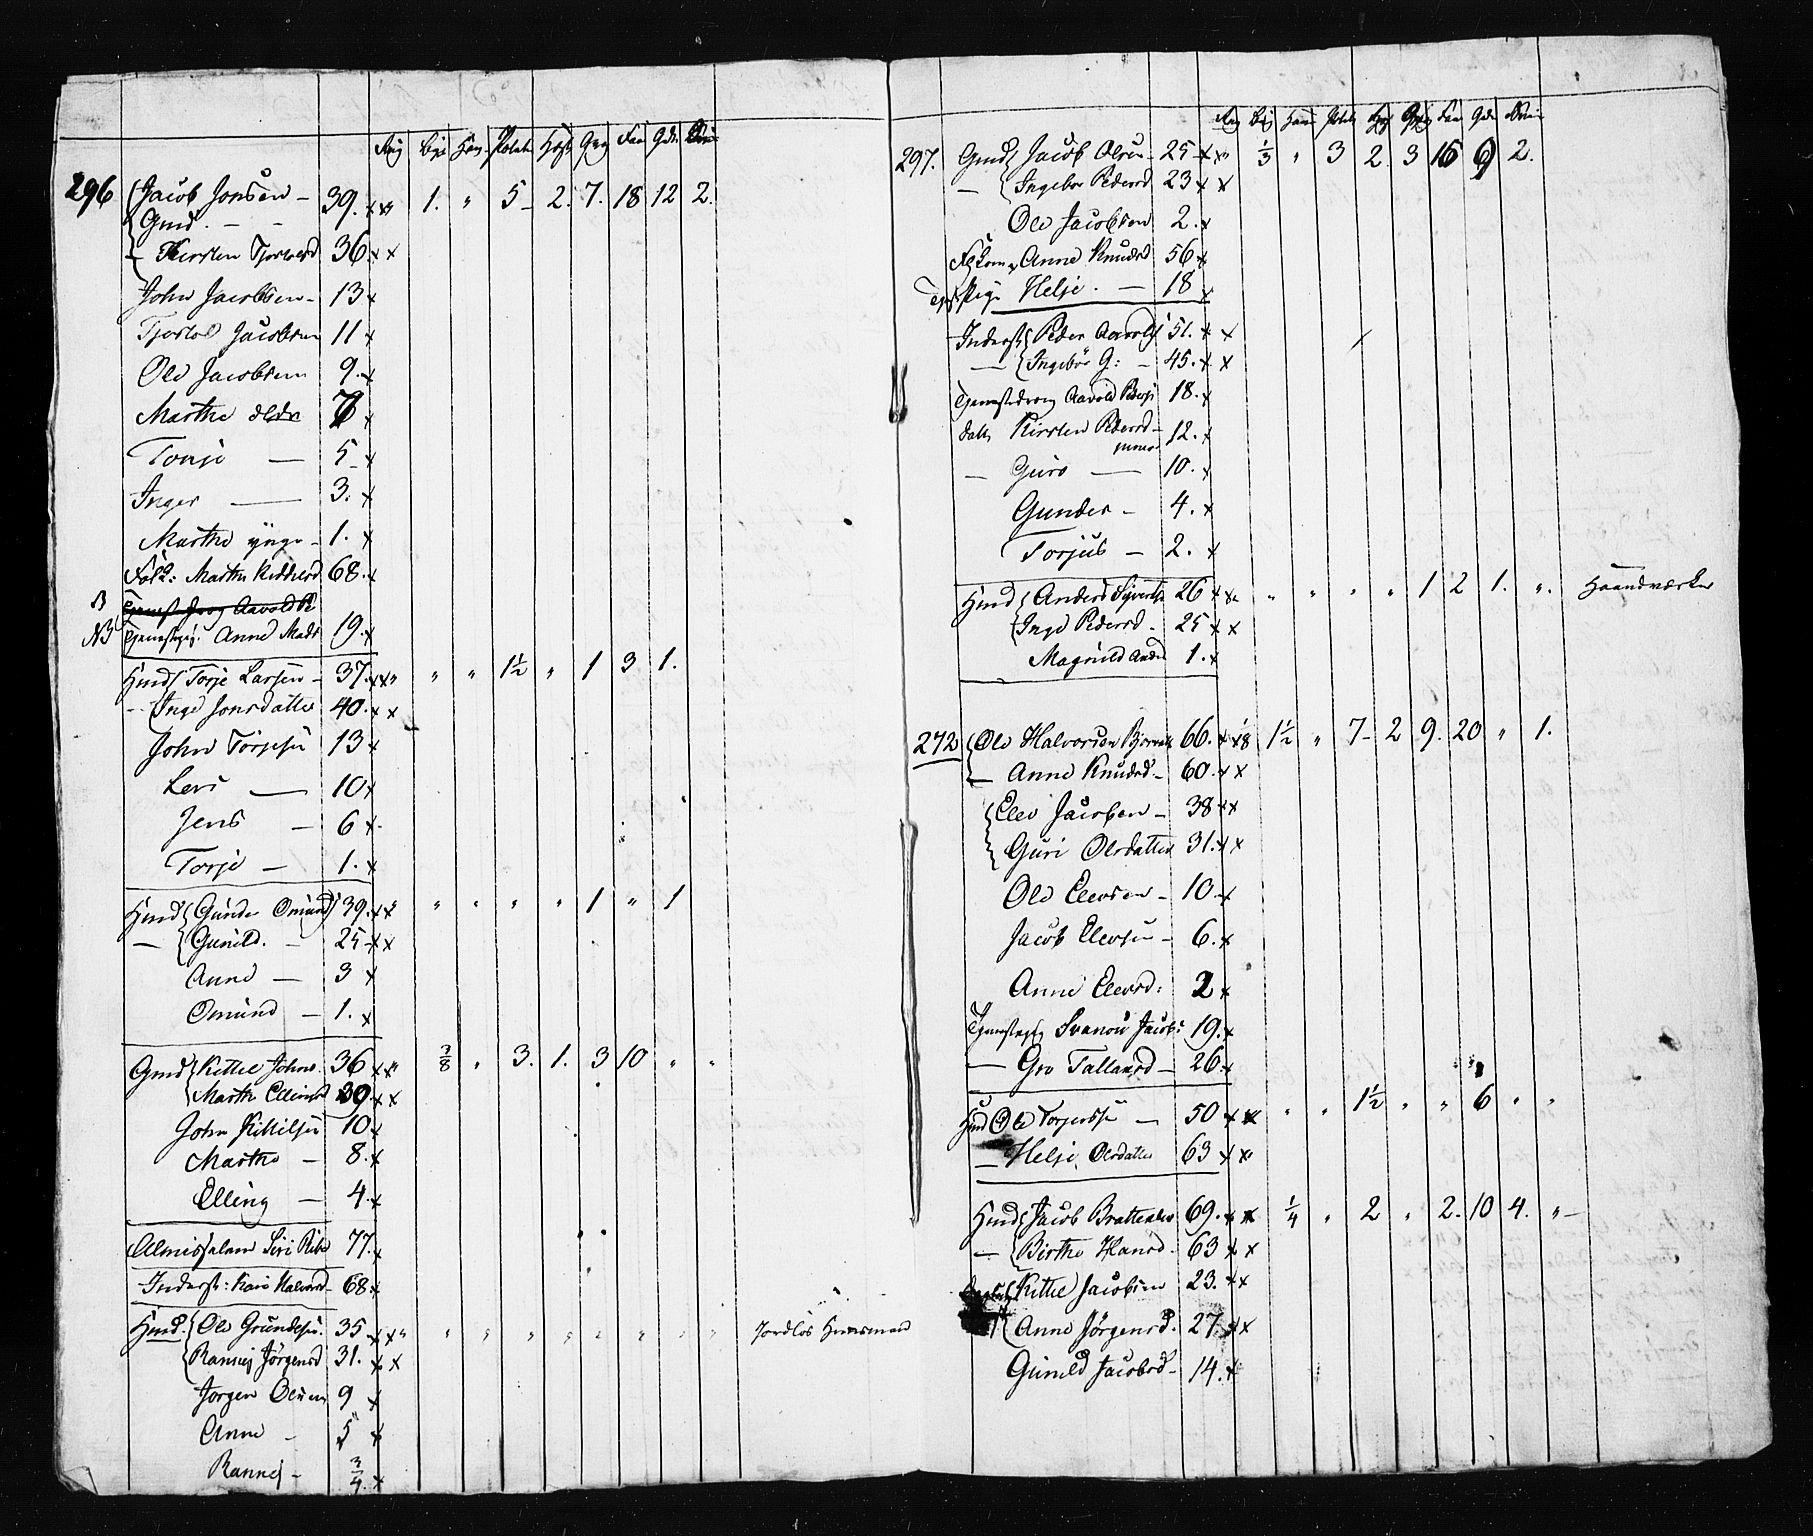 Rug Byg Hav Potet Hest Qvæg Faar Geder Sviin
296 Jacob Jonsen – 39. x x " 1. " 5 – 2. 7. 18 12 2.
Gmd. – –
– Kirsten Tjostolvsd 36. x x
John Jacobsen – 13 x
Tjostol Jacobsen 11 x
Ole Jacobsen 9. x
Marthe ældr 7 x
Tonje — 5 x
Inger — 3. x
Marthe ÿngr – 1. x
Føl2: Marthe Kiddelsd 68. x
NB Tjenestepig. Anne Mads 19. x
Huusd Torje Larsen – 37. x x " " " 1½ " 1 3 1.
– Inge Jonsdatter 40. x x
John Torjesen 13 x
Lars — 10 x
Jens – 6 x
Torje – 1. x
Huusd Gunder Omund 39. x x " " " " " 1 " 1
— Gunild. – 25 x x
Anne — 3 x
Omund – 1. x
Gmd Kittel Johns. 36 x x " 3/8 " 3. 1. 3 10 " "
Marthe Ellingsd 39. x x
John Kittilsen 10 x
Marthe – 8. x
Elling – 4. x
Almisselem Siri 77. x
Inderst: Kari Halvorsd 68 x
Huusd. Ole Grundesen. 35 x x " " " " " " " " " Jordløs Huusmand
Rannej Jørgensd 31. x x
Jørgen Olsen 9 x
Anne – 5 x
Rannej – 3/4. x
Rug Byg Havre Potet Hest Qvæg Faar Geder Sviin
297. Gmd Jacob Olsen – 25 x x " 1/3 " 3 2. 3 16 9 2.
— Ingebor Pedersd 23 x x
Ole Jacobsen 2. x
Anne Knudsd 56 x
Pige Helje. — 18 x
Inderst Peder Aavoldsen 51. x x
— Ingebor G: – 45. x x
Tjenestedreng Aavold Peders 18. x
datt. Kirsten Pedersd – 12. x
– Guro — 10. x
Gunder – 4. x
Torjus – 2. x
Huusd Anders Sÿvertsen 26 x x " " " " 1 2 1. " Haandværker
Inge Pedersd. – 25 x x
Magnild Anders 1. x
272 Ole Halvorsen 66. x x 1/8 1½ " 7 – 2 9. 20 " 1.
— Anne Knudsd – 60. x x
Elev Jacobsen – 38 x x
Guri Olsdatter 31. x x
Ole Elevsen – 10 x
Jacob Elevsen – 6. x
Anne Elevsd: 2 x
Tjenestepig Svanou Jacob: 19. x
— Gro Tallaksd – 26 x
Huusd Ole Torjersen — 50 x x " " 1½ " " 6 " "
— Helje Olsdatter 63 x x
Huusd Jacob 69. x x 1/4 " 2 " 2. 10 4. " –
— Birthe Hansd. 63 x x
Kittel Jacobsen 23. x x
Anne Jørgensd. 27. x x
Gunild Jacobsd – 14. x